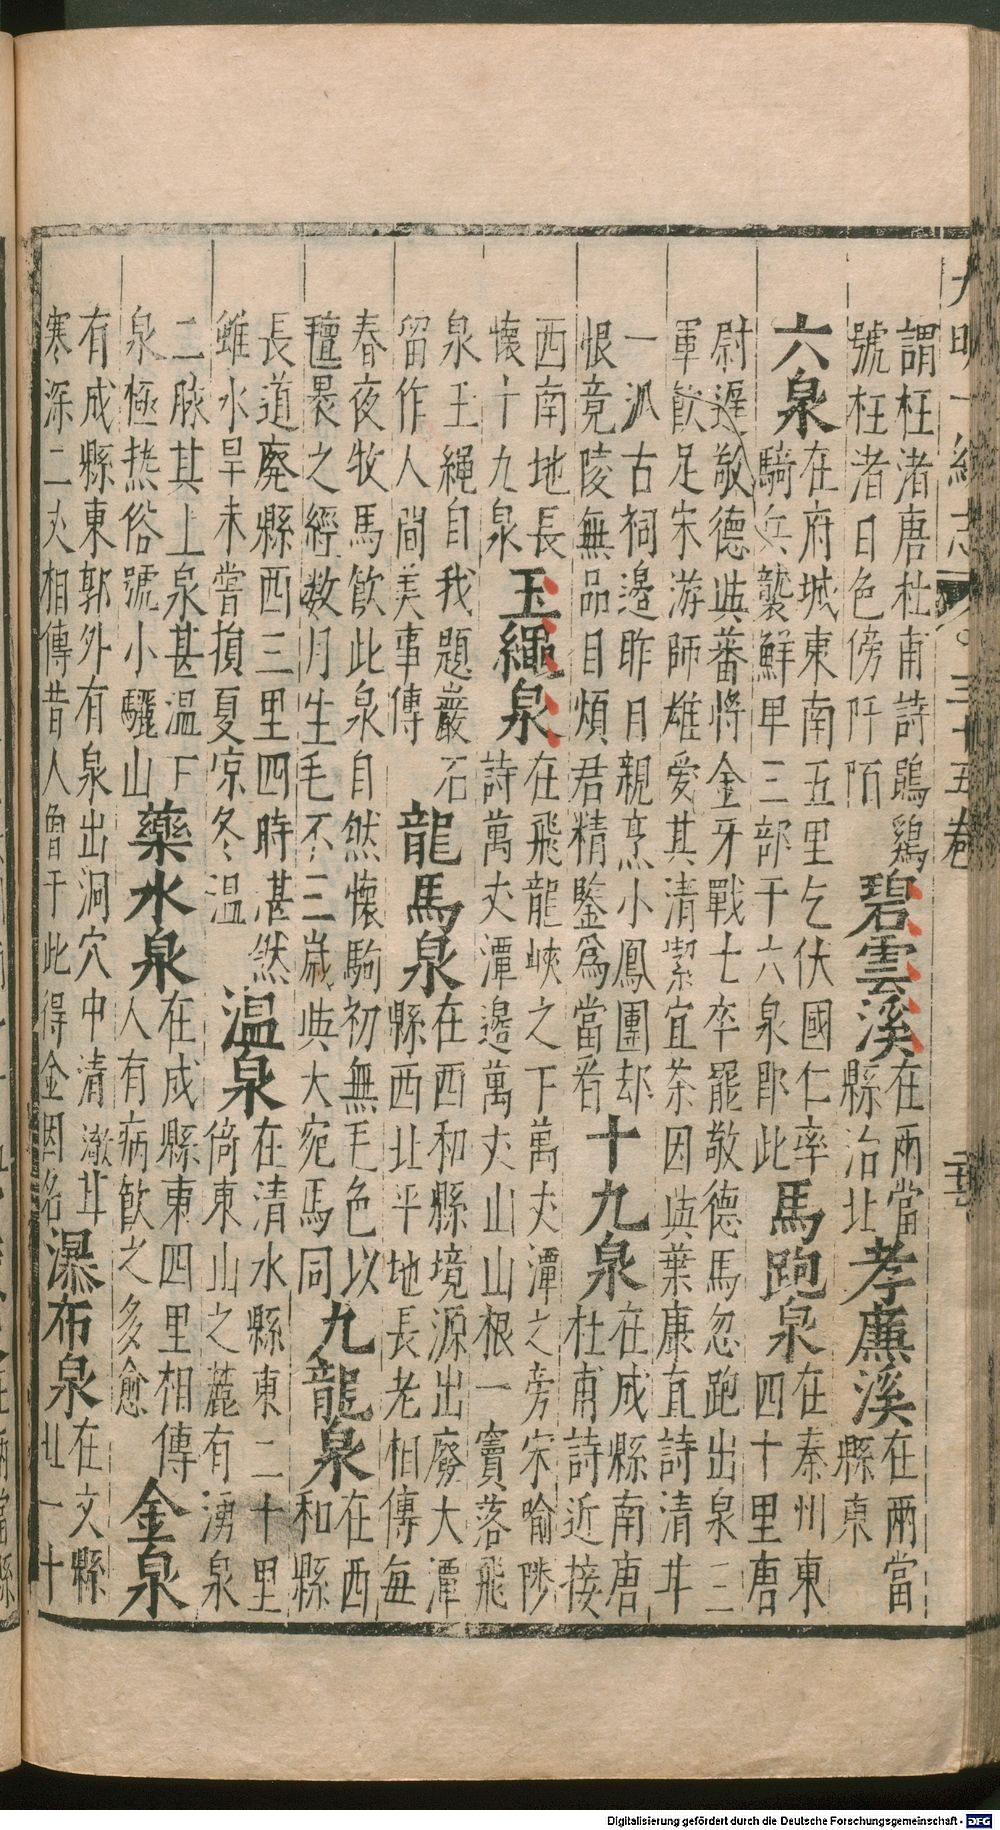 大明一統志 三十五卷
謂枉渚唐杜甫詩鵾鷄
號枉渚日色傍阡陌
碧雲溪
在兩當
縣治北
孝廉溪
在兩當
縣東
六泉
在府城東南五里乞伏國仁率
騎兵襲鮮卑三部于六泉即此
馬跑泉
在秦州東
四十里唐
尉遲敬德與蕃將金牙戰士卒罷敬德馬忽跑出泉三
軍飲足宋游師雄愛其清潔宜茶因與葉康直詩清甘
一派古祠邊昨日親烹小鳳團却
恨竟陵無品目煩君精鑒爲當看
十九泉
在成縣南唐
杜甫詩近接
西南地長
懷十九泉
玉繩泉
在飛龍峽之下萬丈潭之旁宋喻陟
詩萬丈潭邊萬丈山山根一竇落飛
泉玉繩自我題巖石
留作人間美事傳
龍馬泉
在西和縣境源出廢大潭
縣西北平地長老相傳每
春夜牧馬飲此泉自然懷駒初無毛色以
氊裹之經数月生毛不三歲與大宛馬同
九龍泉
在西
和縣
長道廢縣西三里四時湛然
雖水旱未嘗損夏凉冬温
温泉
在清水縣東二十里
倚東山之麓有湧泉
二脉其上泉甚温下
泉極热俗號小驪山
藥水泉
在成縣東四里相傳
人有病飲之多愈
金泉
有成縣東郭外有泉出洞穴中清澈甘
寒深二丈相傳昔人曾于此得金因名
瀑布泉
在文縣
北一十
Digitalisierung gefördert durch die Deutsche Forschungsgemeinschaft - DFG